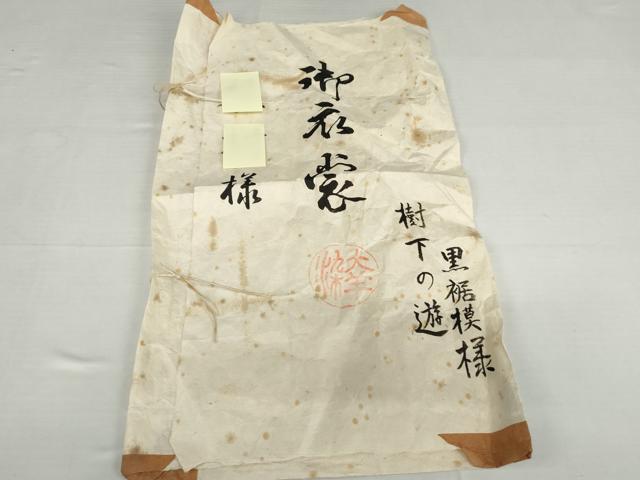 黒裾模様
樹下の遊
御衣裳
様